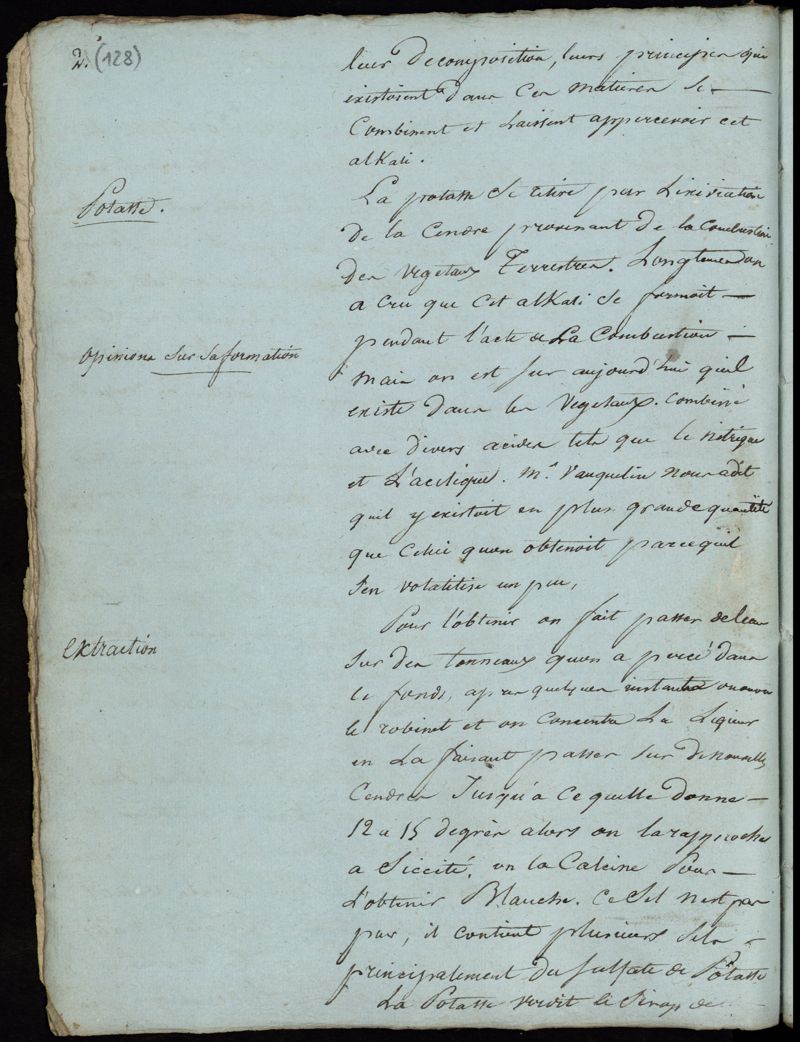 2. (128)
leur Decomposition, leurs principes qui
existoient dans ces matieres se
Combinent et Laissent appercevoir cet
alkali.
Potasse.
La potasse se retire par Lixiviation
de la Cendre provenant de la Combustion
des vegetaux Terrestres. Longtems on
a cru que cet alkali se formoit
pendant l'acte de La Combustion
opinions sur sa formation
mais on est sur aujourd'hui quil
existe dans les vegetaux. Combiné
avec divers acides tels que le nitrique
et L'acetique. Mr. Vauquelin nous a dit
quil y existoit en plus grande quantité
que celui quon obtenoit parcequil
s'en volatilise un peu,
extraction
Pour l'obtenir on fait passer de l'eau
sur des tonneaux quon a percé dans
le fonds, apres quelques instants on ouvre
le robinet et on concentre La Liqueur
en La faisant passer sur de nouvelles
Cendres Jusqu'a ce quelle donne
12 a 15 degrès alors on la rapproche
a siccité. on la Calcine Pour
L'obtenir Blanche. Ce sel n'est pas
pur, il contient plusieurs sels
principalement du sulfate de Potasse
La Potasse verdit le sirop de